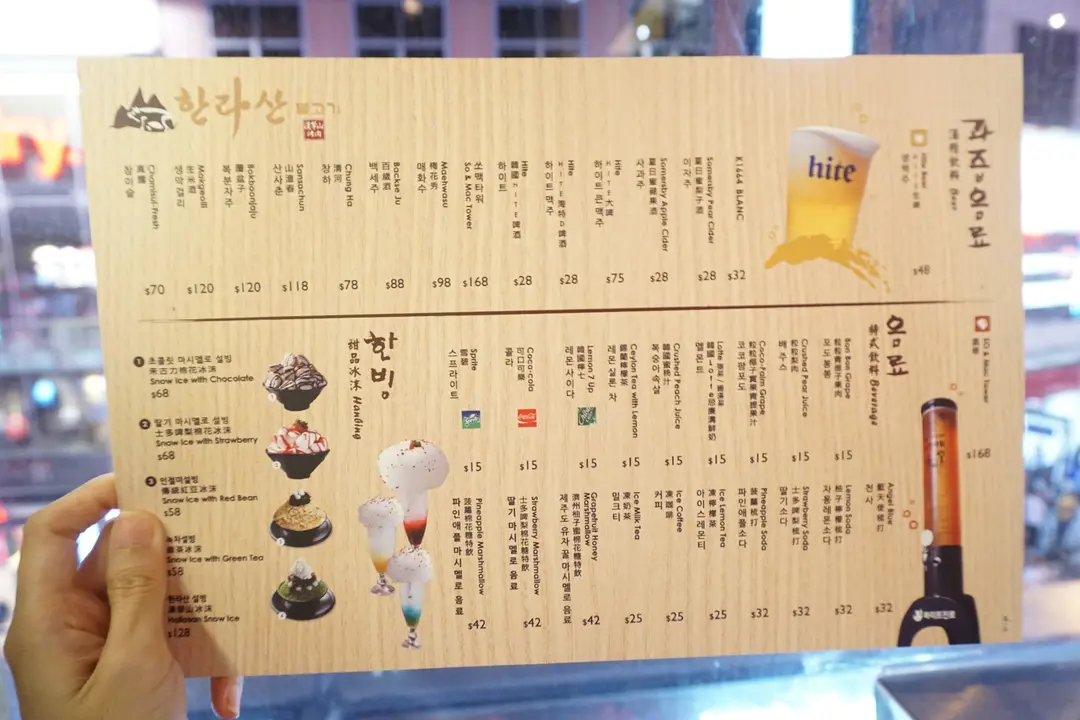 한라산 불고기
漢拏山
烤肉
과주&음료
酒類飲料 Beer
Hite Beer
HITE生啤
생맥주
$48
hite
K1664 BLANC
$32
Somersby Pear Cider
夏日蜜梨子酒
이자주
$28
Somersby Apple Cider
夏日蜜蘋果酒
사과주
$28
Hite
HITE大啤
하이트 큰 맥주
$75
Hite
하이트D 맥주
$28
Hite
韓國HITE啤酒
하이트
$28
So & Mac Tower
쏘맥타워
$168
Maehwasu
梅花秀
매화수
$98
Backse Ju
百歲酒
백세주
$88
Chung Ha
清河
청하
$78
Sansachun
山査春
산사춘
$118
Bokboonjaju
覆盆子
복분자주
$120
Makgeolli
생막걸리
$120
Chamisul-fresh
真露
참이슬
$70
SO & Maac Tower
$168
음료
韓式飲料 Beverage
Bon Bon Grape
포도봉봉
$15
Crushed Pear Juice
粒粒梨肉
배주스
$15
Coco-Palm Grape
粒粒椰子實果青提果汁
코코팜포도
$15
Lotte
$15
Crushed Peach Juice
韓國蜜桃汁
복숭아속살
$15
Ceylon Tea with Lemon
錫蘭檸檬茶
레몬 실론 차
$15
Lemon 7 Up
韓國檸七
레몬 사이다
$15
Coca-cola
可口可樂
콜라
$15
Sprite
雪碧
스프라이트
$15
Angel Blue
藍天使梳打
천사
$32
Lemon Soda
柚子檸檬梳打
자몽레몬소다
$32
Strawberry Soda
士多啤梨梳打
딸기소다
$32
Pineapple Soda
菠蘿梳打
파인애플소다
$32
Ice Lemon Tea
凍檸檬茶
아이스레몬티
$25
Ice Coffee
凍咖啡
커피
$25
Ice Milk Tea
凍奶茶
밀크티
$25
Grapefruit Honey
Marshmallow
濟州柚子蜜棉花糖特飲
제주도 유자 꿀 마시멜로 음료
$42
Strawberry Marshmallow
士多啤梨棉花糖特飲
딸기 마시멜로 음료
$42
Pineapple Marshmallow
菠蘿棉花糖特飲
파인애플 마시멜로 음료
$42
한빙
甜品冰沫 HanBing
1 초콜릿 마시멜로 설빙
朱古力棉花冰沫
Snow Ice with Chocolate
$68
2 딸기 마시멜로 설빙
士多啤梨棉花冰沫
Snow Ice with Strawberry
$68
3 인절미설빙
傳統紅豆冰沫
Snow Ice with Red Bean
$58
녹차설빙
綠茶冰沫
Snow Ice with Green Tea
$58
한라산 설빙
漢拏山冰沫
Hallasan Snow Ice
$128
하이트진로